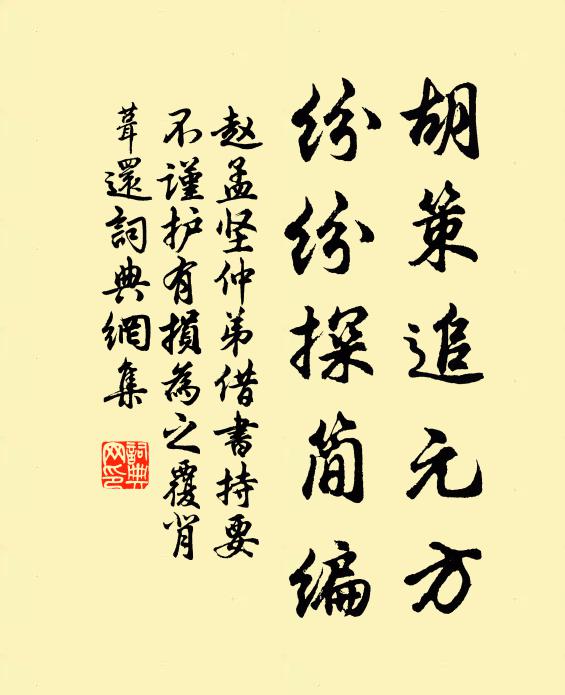 胡策追元方
纷纷探简编
赵孟坚仲弟借書持要
不谨护有損為之覆背
葺還詞典網集
詞典
网印